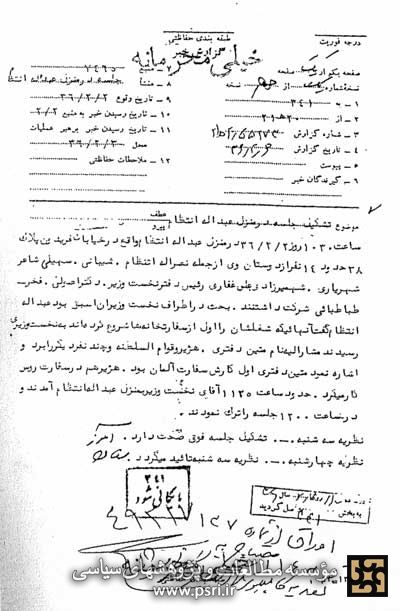 درجه فوریت
طبقه بندی حفاظتی
گزارش خبر
خیلی محرمانه
صفحه یک از یک صفحه
نسخه شماره از نسخه
۱ - به ۳۴۱
۲ - از ۲۰ه۲۱
۳ - شماره گزارش
۴ - تاریخ گزارش
۵ - پیوست
۶ - گیرندگان خبر
۷ - منبع ۷۴۹۵
۸ - منشأ جلسه در منزل عبداله انتظام
۹ - تاریخ وقوع ۳۶/۲/۲
۱۰ - تاریخ رسیدن خبر به منبع ۲/۲
۱۱ - تاریخ رسیدن خبر به رهبر عملیات
محل ۳۶/۲/۳
۱۲ - ملاحظات حفاظتی
موضوع تشکیل جلسه در منزل عبداله انتظام
عطف
پیرو
ساعت ۱۰۳۰ روز ۳۶/۲/۲ در منزل عبداله انتظام واقع در خیابان فریدین پلاک
۳۸ حدود ۱۴ نفر از دوستان وی از جمله نصراله انتظام . شیبانی . سهیلی شاعر
شهریاری . شهمیرزادی علی غفاری رئیس دفتر نخست وزیر . دکتر اعدیلی . فخر
طباطبائی شرکت داشتند . بحث در اطراف نخست وزیران اسبق بود عبداله
انتظام گفت آنهائیکه شغلشان را اول از سفارتخانه ها شروع کرده اند به نخست وزیری
رسیدند مشارالیه نام متین دفتری . هژیر و قوام السلطنه و چند نفر دیگر را برد و
اشاره نمود متین دفتری اول کارش سفارت آلمان بود . هژیر هم در سفارت روس
کار میکرد . حدود ساعت ۱۱۲۵ آقای نخست وزیر به منزل عبداله انتظام آمدند و
در ساعت ۱۲۰۰ جلسه را ترک نمودند .
نظریه سه شنبه .-. تشکیل جلسه فوق صحت دارد .
نظریه چهارشنبه .-. نظریه سه شنبه تائید میگردد
۳۴۱
بایگانی شود
اوراق از شماره
مؤسسه مطالعات و پژوهشهای سیاسی
www.psri.ir